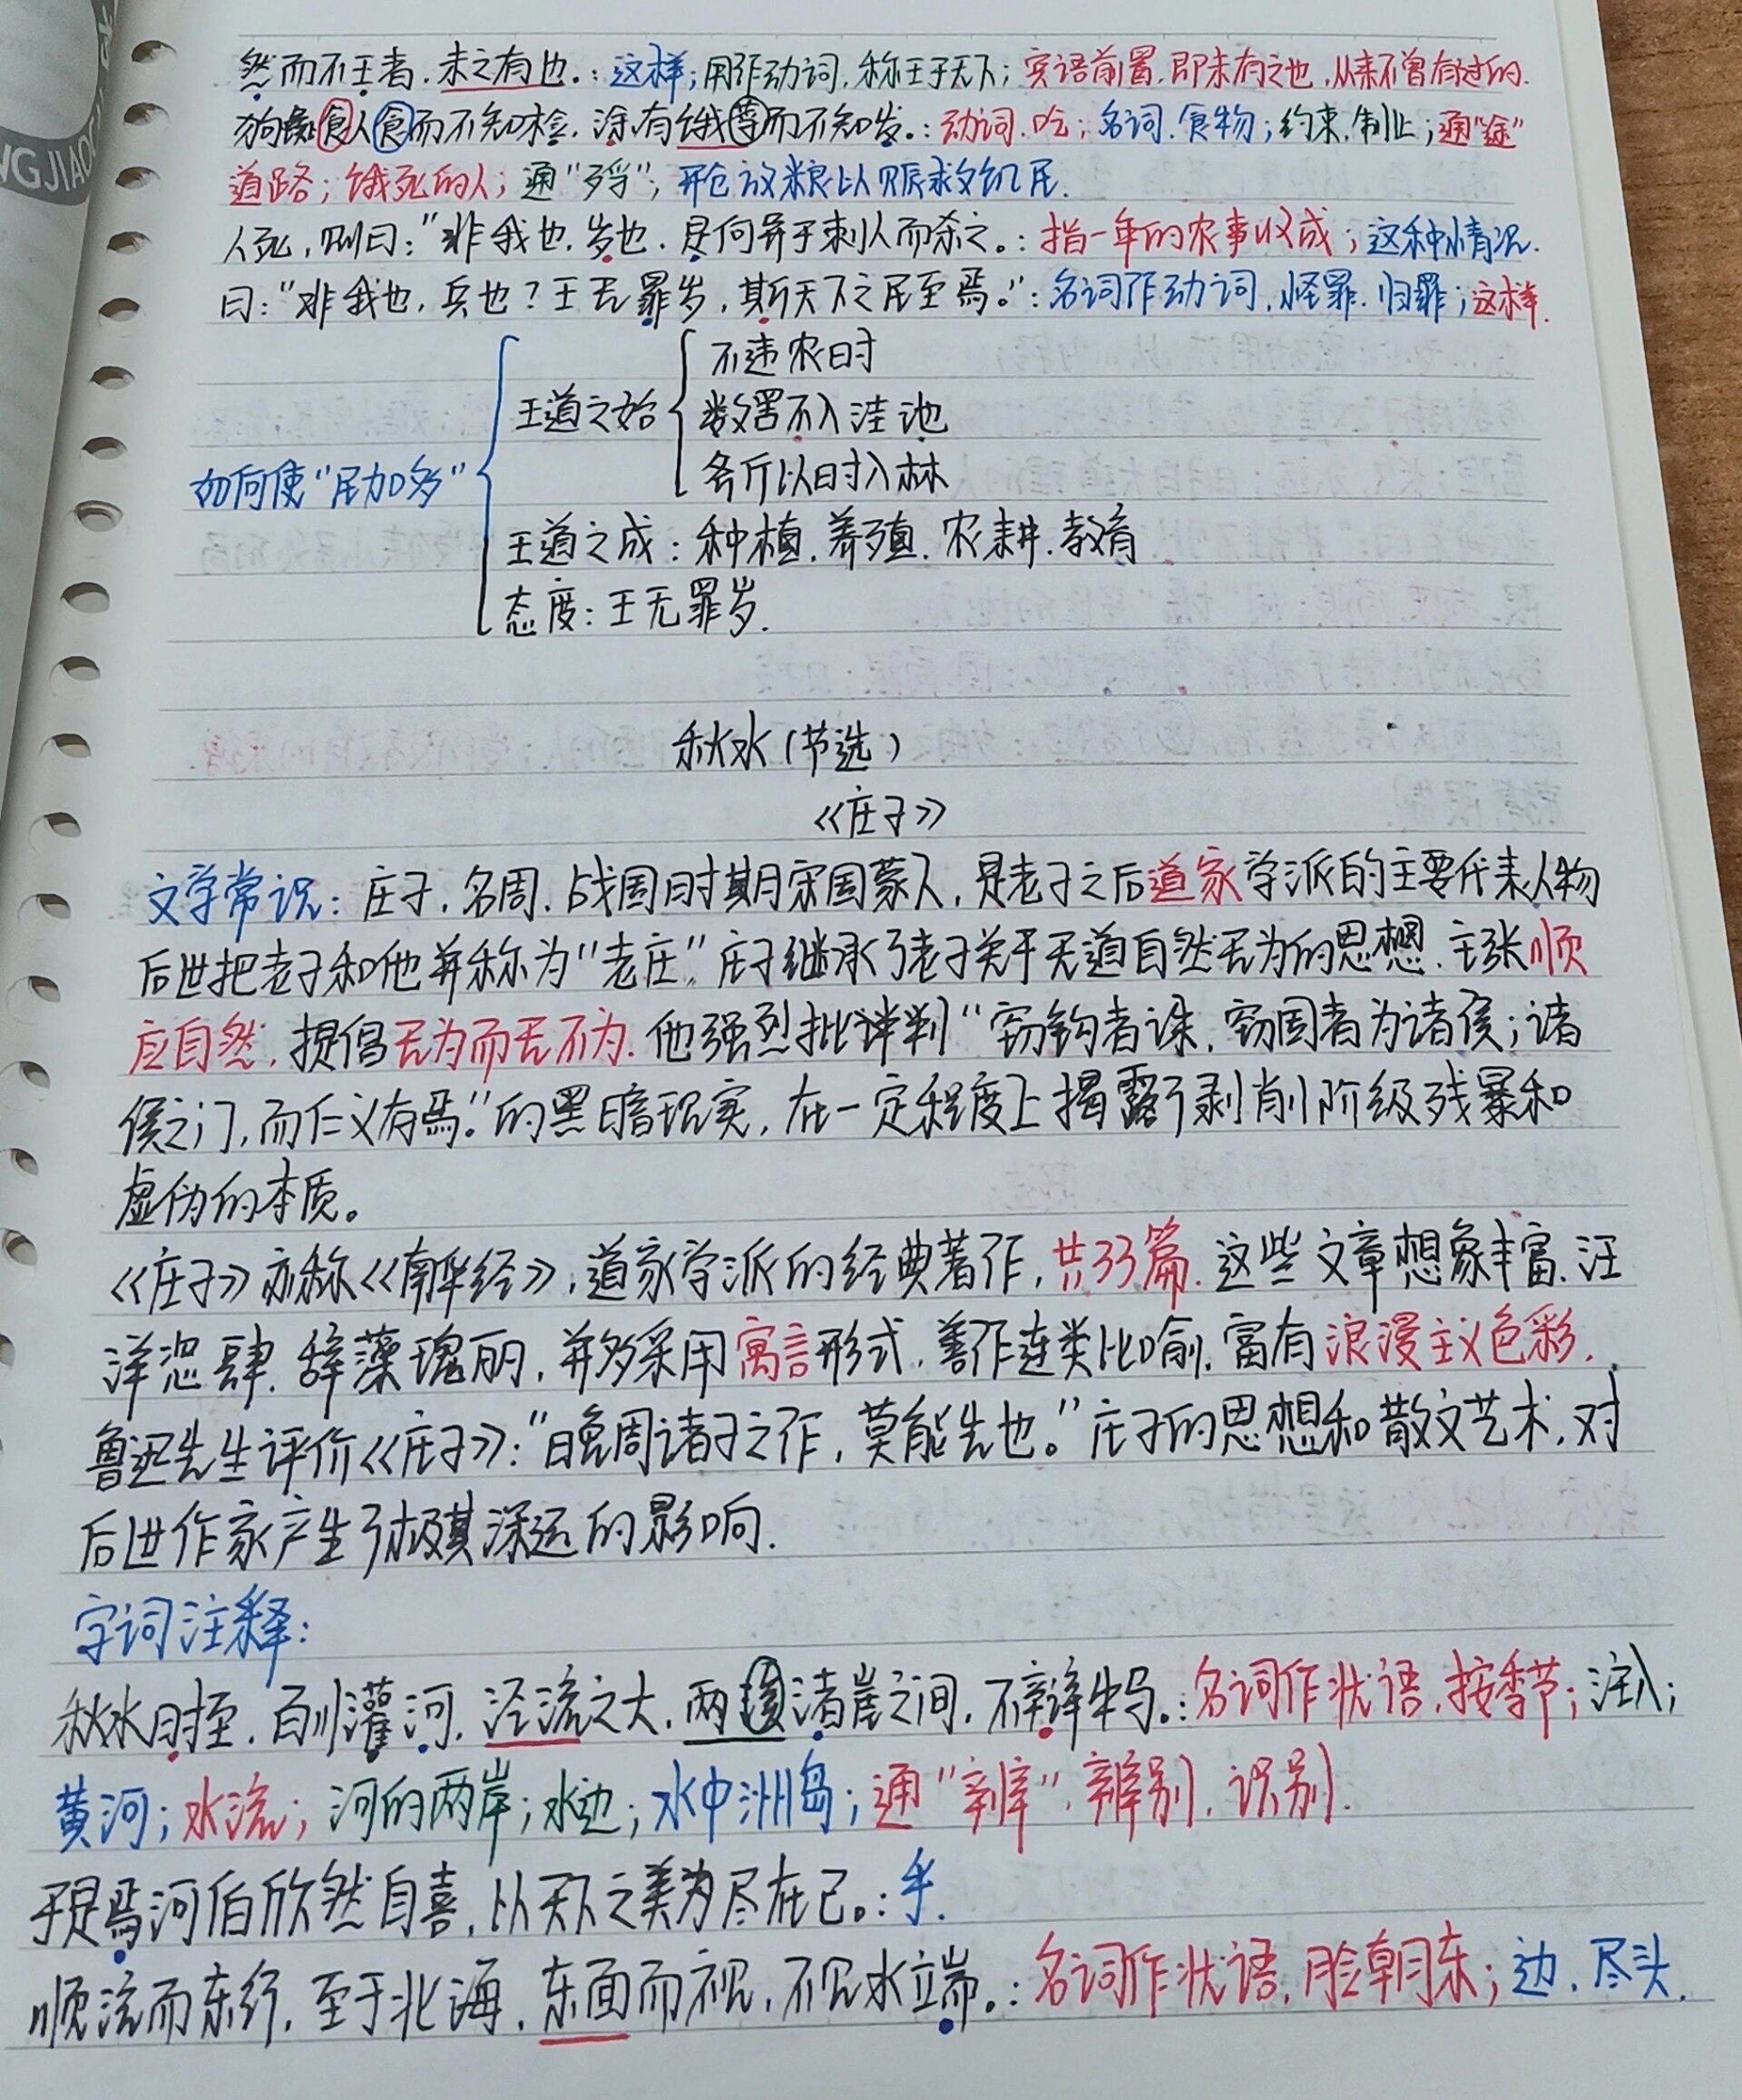 然而不王者，未之有也。：这样；用作动词，称王于天下；宾语前置，即未有之也，从来不曾有过的.
狗彘食人食而不知检，涂有饿莩而不知发。：动词.吃；名词.食物；约束,制止；通“途”
道路；饿死的人；通“殍”；开仓放粮以赈救饥民.
人死，则曰：“非我也，岁也.是何异于刺人而杀之。：指一年的农事收成；这种情况.
曰：“非我也，兵也？王无罪岁，斯天下之民至焉。”：名词作动词，怪罪.归罪；这样.
不违农时
王道之始
数罟不入洼池
如何使“民加多”
斧斤以时入林
王道之成：种植.养殖.农耕.教育
态度：王无罪岁.
秋水(节选)
《庄子》
文学常识：庄子，名周，战国时期宋国蒙人，是老子之后道家学派的主要代表人物
后世把老子和他并称为“老庄”庄子继承了老子关于天道自然无为的思想.主张顺
应自然，提倡无为而无不为.他强烈批评判“窃钩者诛，窃国者为诸侯；诸
侯之门，而仁义存焉。”的黑暗现实，在一定程度上揭露了剥削阶级残暴和
虚伪的本质。
《庄子》亦称《南华经》，道家学派的经典著作，共33篇.这些文章想象丰富.汪
洋恣肆.辞藻瑰丽，并多采用寓言形式，善作连类比喻.富有浪漫主义色彩.
鲁迅先生评价《庄子》：“晚周诸子之作，莫能先也。”庄子的思想和散文艺术，对
后世作家产生了极其深远的影响.
字词注释：
秋水时至，百川灌河，泾流之大，两涘渚崖之间，不辩牛马。：名词作状语，按季节；注入；
黄河；水流；河的两岸；水边；水中洲岛；通“辨”，辨别，识别.
于是焉河伯欣然自喜，以天下之美为尽在己。：乎.
顺流而东行，至于北海，东面而视，不见水端。：名词作状语，脸朝东；边，尽头.